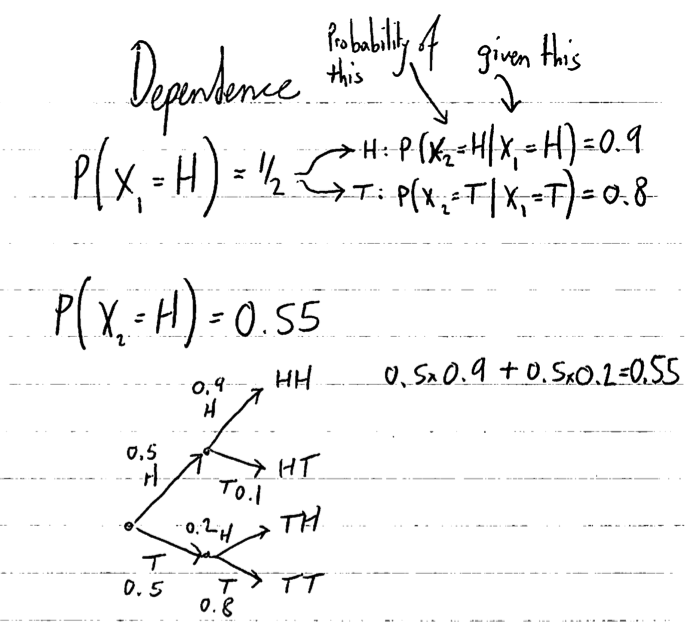 Dependence
Probability of this
given this
P(X₁=H) = 1/2
H: P(X₂=H|X₁=H)=0.9
T: P(X₂=T|X₁=T)=0.8
P(X₂=H)=0.55
0.5x0.9 + 0.5x0.2=0.55
0.9
H
HH
0.5
H
T 0.1
HT
0.2 H
TH
T
0.5
T
0.8
TT